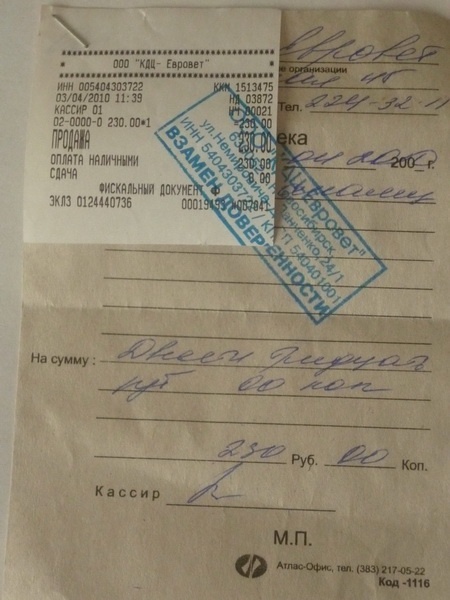 ООО "КДЦ- Евровет"
ИНН 005404303722 ККМ 1513475
03/04/2010 11:39 НД 03872
КАССИР 01 НЧ 00021
02-0000-0 230.00*1 =230.00
ПРОДАЖА 230.00
ОПЛАТА НАЛИЧНЫМИ 230.00
СДАЧА 0.00
ФИСКАЛЬНЫЙ ДОКУМЕНТ
ЭКЛЗ 0124440736
Евровет
организации
Тел. 224-32-11
200 г.
Евровет"
Новосибирск
ул. Немировича-Данченко, 24/1
ИНН 5404303722 / КПП 540401001
ВЗАМЕН ДОВЕРЕННОСТИ
На сумму : Двести тридцать
руб 00 коп
230 Руб. 00 Коп.
Кассир
М.П.
Атлас-Офис, тел. (383) 217-05-22
Код -1116